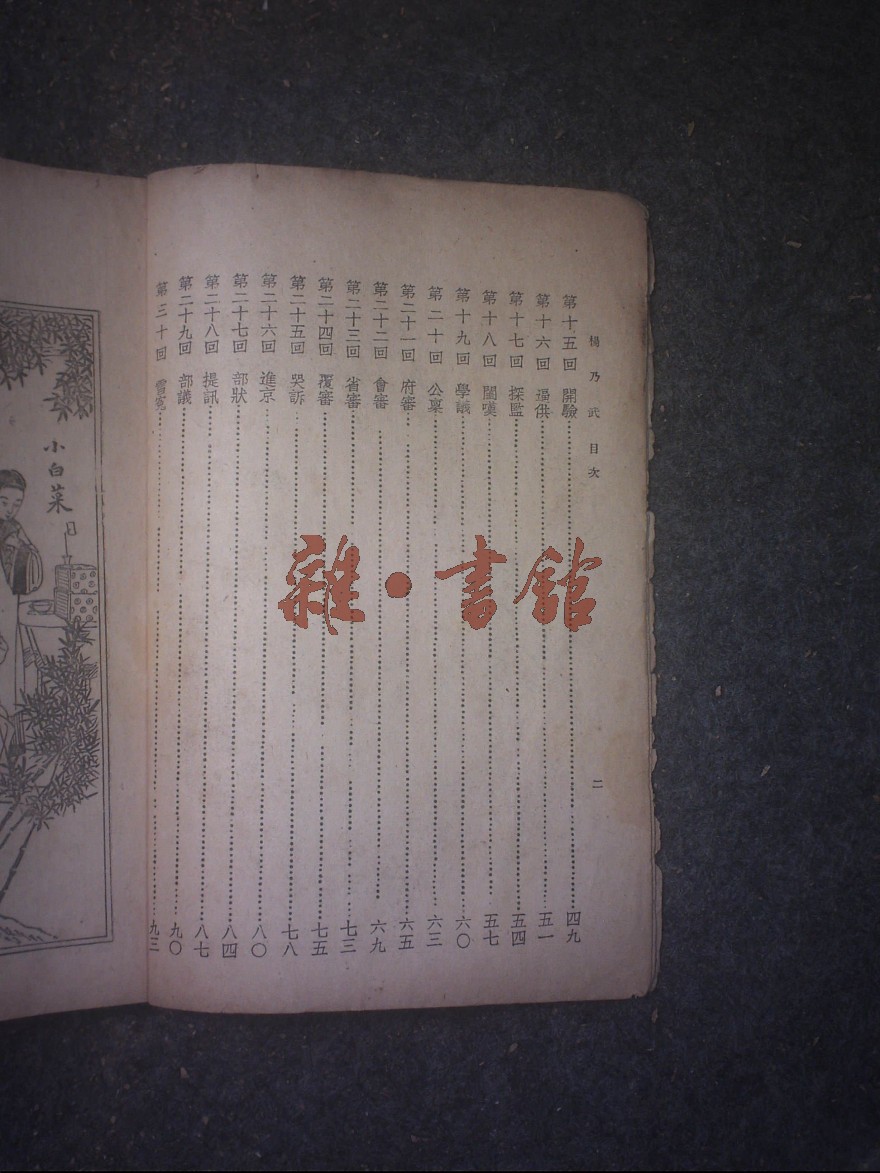 楊乃武 目次
二
第十五回 開驗 四九
第十六回 逼供 五一
第十七回 探監 五四
第十八回 閨嘆 五七
第十九回 學議 六〇
第二十回 公稟 六三
第二十一回 府審 六五
第二十二回 會審 六九
第二十三回 省審 七三
第二十四回 覆審 七五
第二十五回 哭訴 七八
第二十六回 進京 八〇
第二十七回 部狀 八四
第二十八回 提訊 八七
第二十九回 部議 九〇
第三十回 雪冤 九三
小白菜
雜·書館